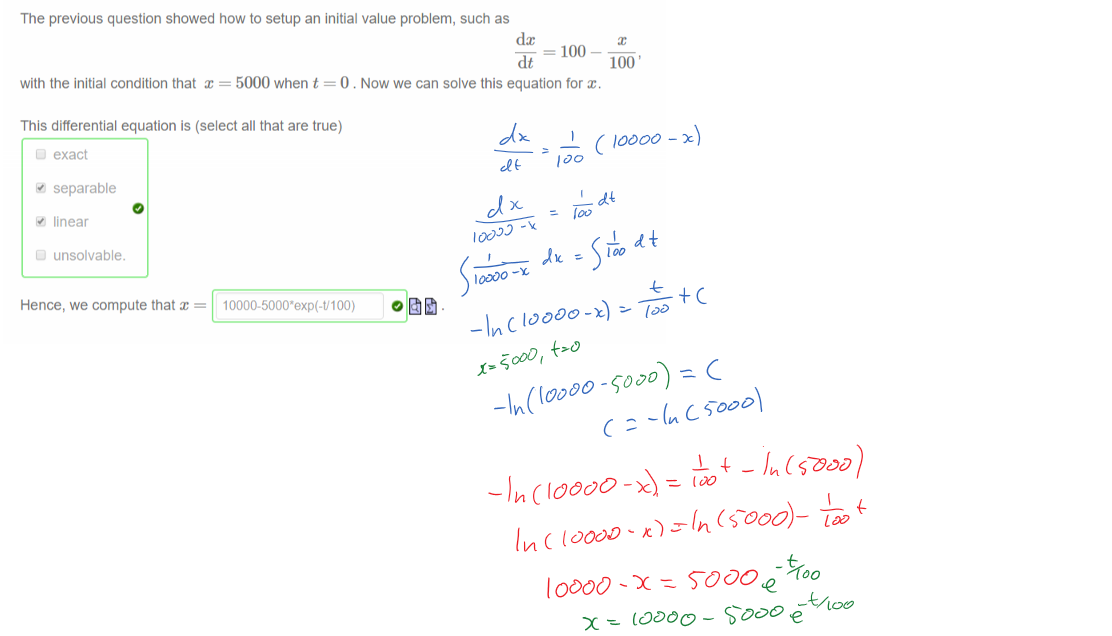 The previous question showed how to setup an initial value problem, such as
dx/dt = 100 − x/100,
with the initial condition that x = 5000 when t = 0. Now we can solve this equation for x.
This differential equation is (select all that are true)
exact
separable
linear
unsolvable.
Hence, we compute that x = 10000-5000*exp(-t/100) .
dx/dt = 1/100 (10000 - x)
dx/(10000 - x) = 1/100 dt
∫ 1/(10000 - x) dx = ∫ 1/100 dt
-ln(10000 - x) = t/100 + C
x=5000, t=0
-ln(10000 - 5000) = C
C = -ln(5000)
-ln(10000 - x) = 1/100 t - ln(5000)
ln(10000 - x) = ln(5000) - 1/100 t
10000 - x = 5000 e^(-t/100)
x = 10000 - 5000 e^(-t/100)